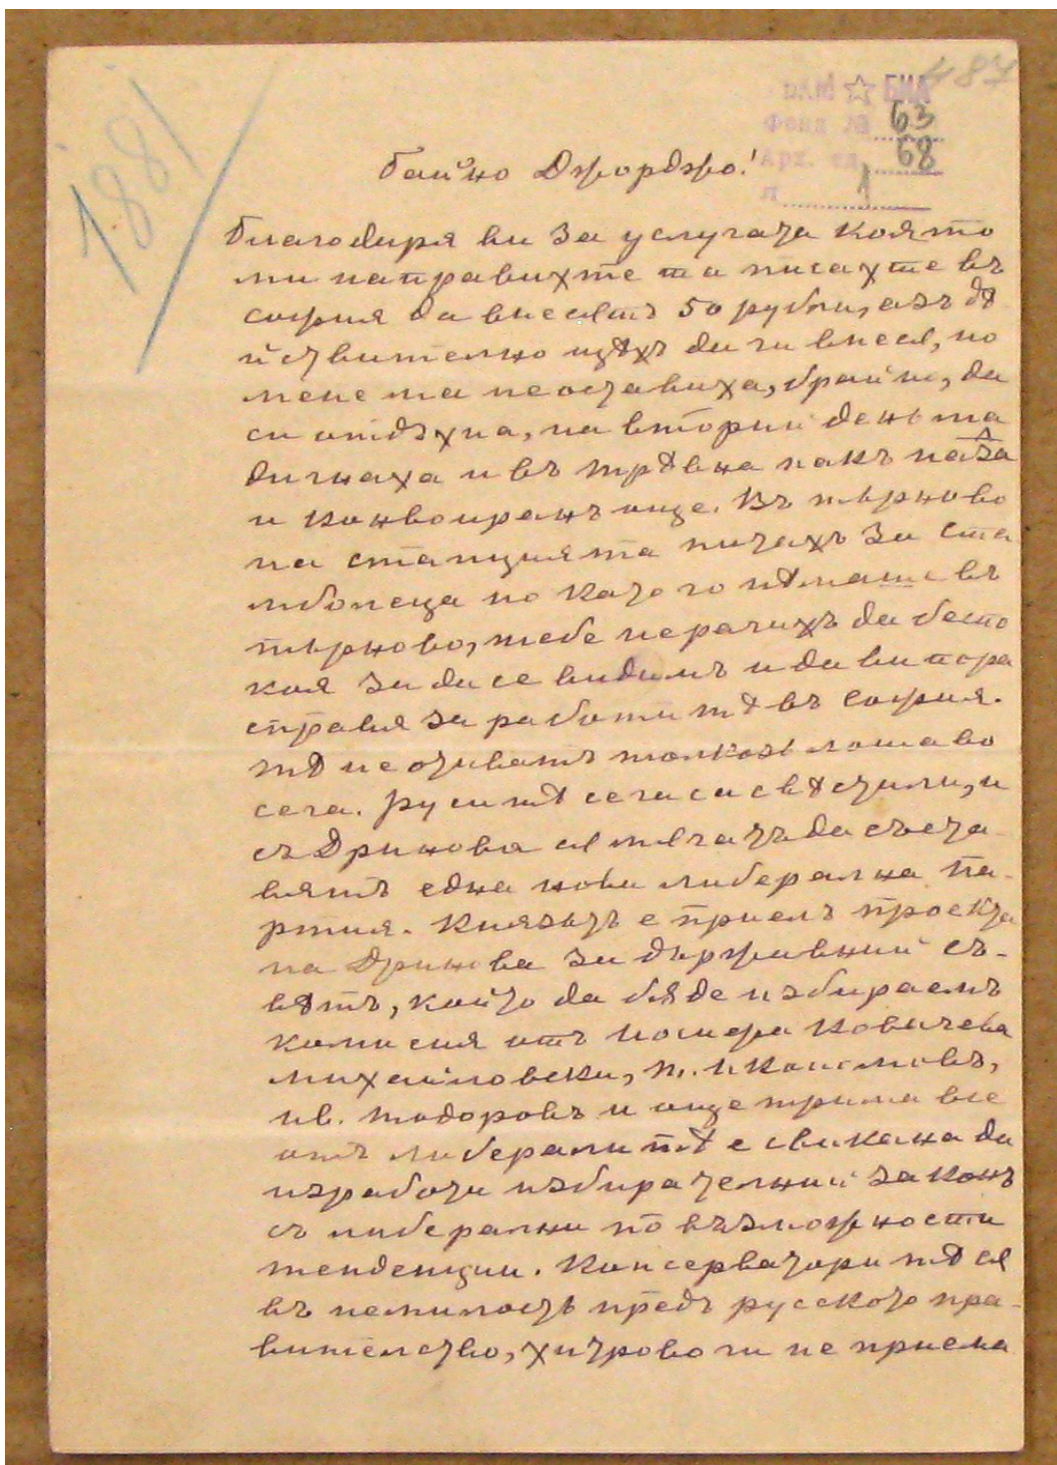 487
1881
НБКМ ☆ БИА
Фонд № 63
Арх. ед. 68
л. 1
Байно Джорджо!
Благодиря ви за услугата която
ми направихте та писахте въ
София да внесѫтъ 50 рубли, азъ дѣ
йствително щѣхъ да ги внесѫ, но
мене ма неоставиха, брайно, да
си отдъхна, на вторий день ма
дигнаха и въ Трѣвна пакъ
и конвоиранъ още. Въ Тьрново
на станцията питахъ за Ста
мболеца но като го нѣмаше въ
Тьрново, тебе нерачихъ да беспо
коя за да се видимъ и да ви пора
справя за работитѣ въ София.
Тѣ не отиватъ толкозь лошаво
сега. Руситѣ сега са свѣстили, и
съ Дринова сѫ мѫчатъ да съста
вятъ една нова либерална па-
ртия. Князьтъ е приелъ проекта
на Дринова за държавний съ-
вѣтъ, който да бѫде избираемъ
комисия отъ Конера Ковачева
Михайловски, П. Икономовъ,
Ив. Тодоровъ и още трима все
отъ либералитѣ е свикана да
изработи избирателний законъ
съ либерални по възможности
тенденции. Консерваторитѣ сѫ
въ немилость предъ русското пра-
вителство, Хитрово ги не приема